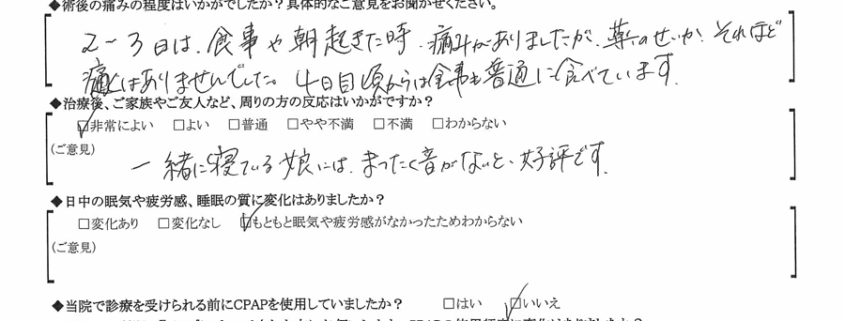 ◆術後の痛みの程度はいかがでしたか?具体的なご意見をお聞かせください。
2〜3日は、食事や朝起きた時、痛みがありましたが、薬のせいか、それほど
痛くはありませんでした。4日目頃からは食事も普通に食べています。
◆治療後、ご家族やご友人など、周りの方の反応はいかがですか?
☑非常によい □よい □普通 □やや不満 □不満 □わからない
(ご意見)
一緒に寝ている娘には、まったく音がないと、好評です。
◆日中の眠気や疲労感、睡眠の質に変化はありましたか?
□変化あり □変化なし ☑もともと眠気や疲労感がなかったためわからない
(ご意見)
◆当院で診療を受けられる前にCPAPを使用していましたか? □はい ☑いいえ